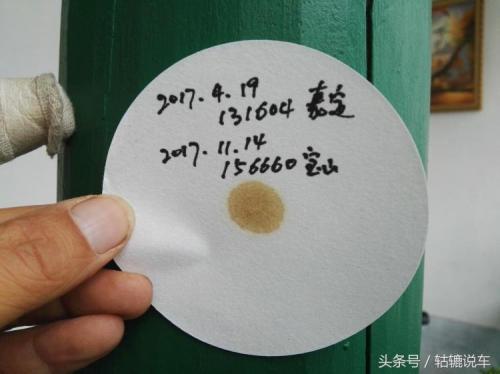 2017.4.19
131604 嘉定
2017.11.14
156660 宝山
头条号 / 轱辘说车